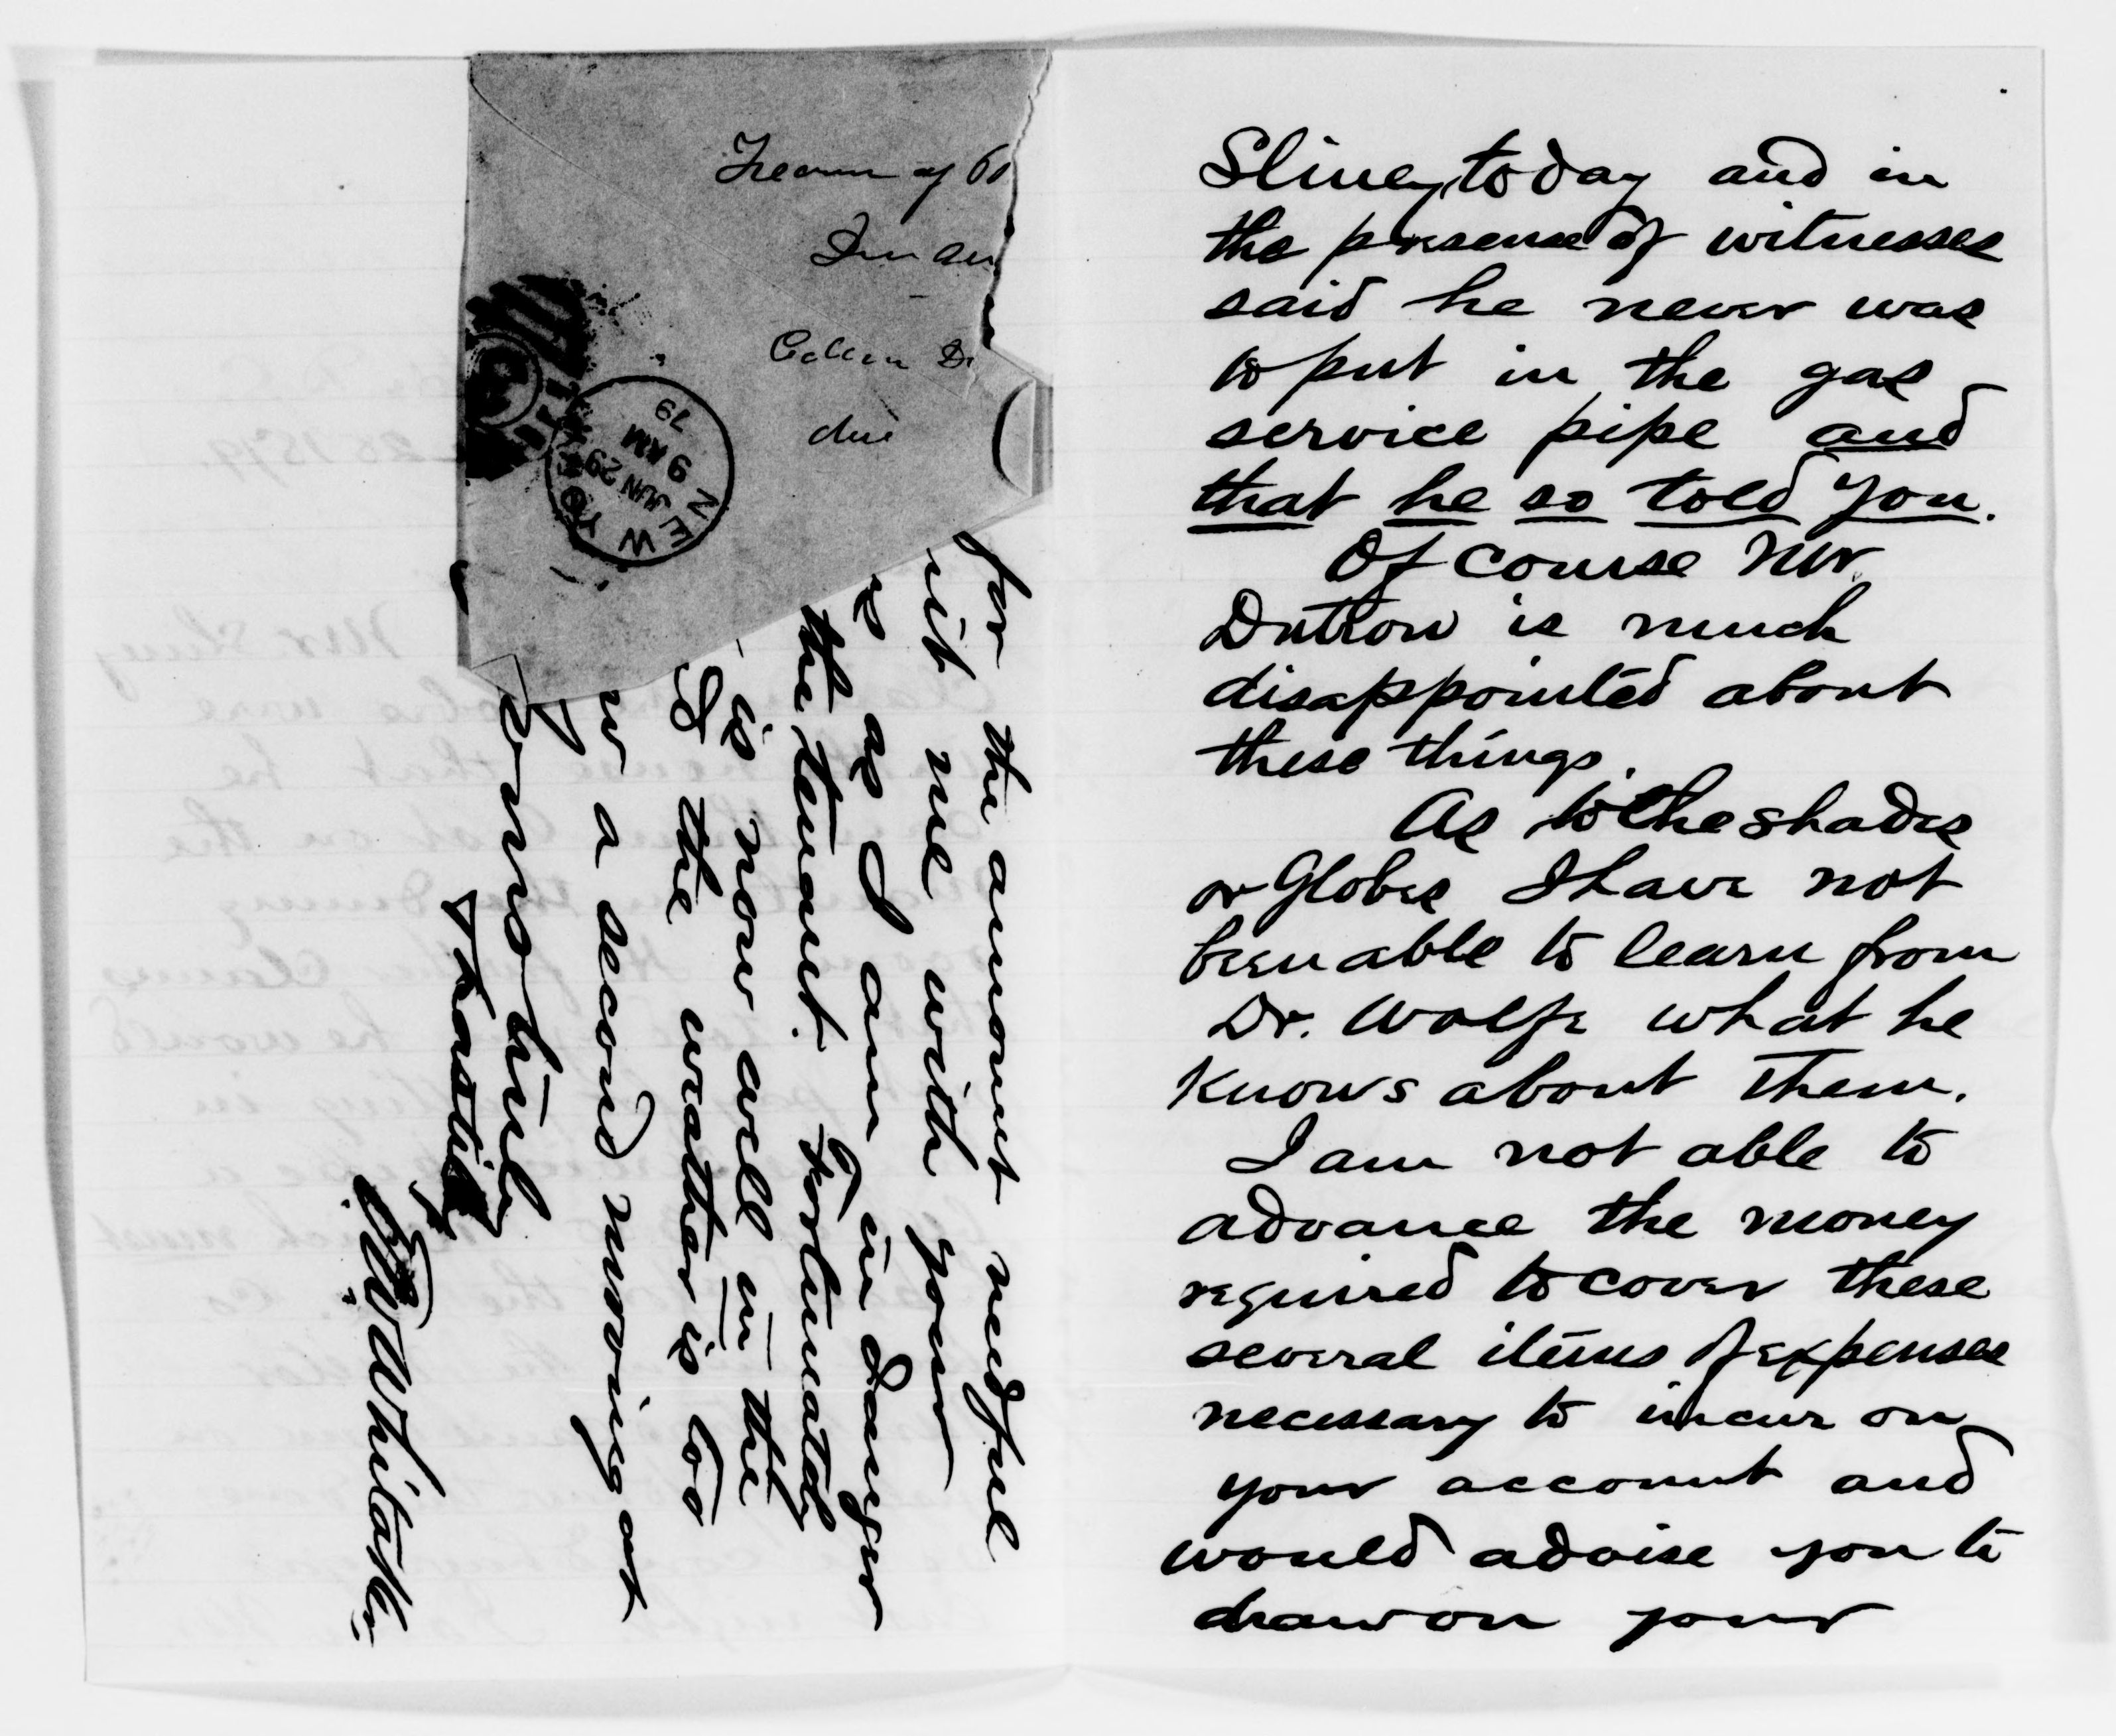 Sliney, today and in
the presence of witnesses
said he never was
to put in the gas
service pipe and
that he so told you.
Of course Mr
Dutrow is much
disappointed about
these things.
As to the shades
or Globes I have not
been able to learn from
Dr. Wolfe what he
knows about them.
I am not able to
advance the money
required to cover these
several items of expenses
necessary to incur on
your account and
would advise you to
draw on your
for the amount needful
mit me with your
as I am in danger
the tenant. Fortunately
is now well in the
& the weather is too
a second moving at
time
Hastily
Whitaker
due
NEW YO
JUN 29
9 AM
79